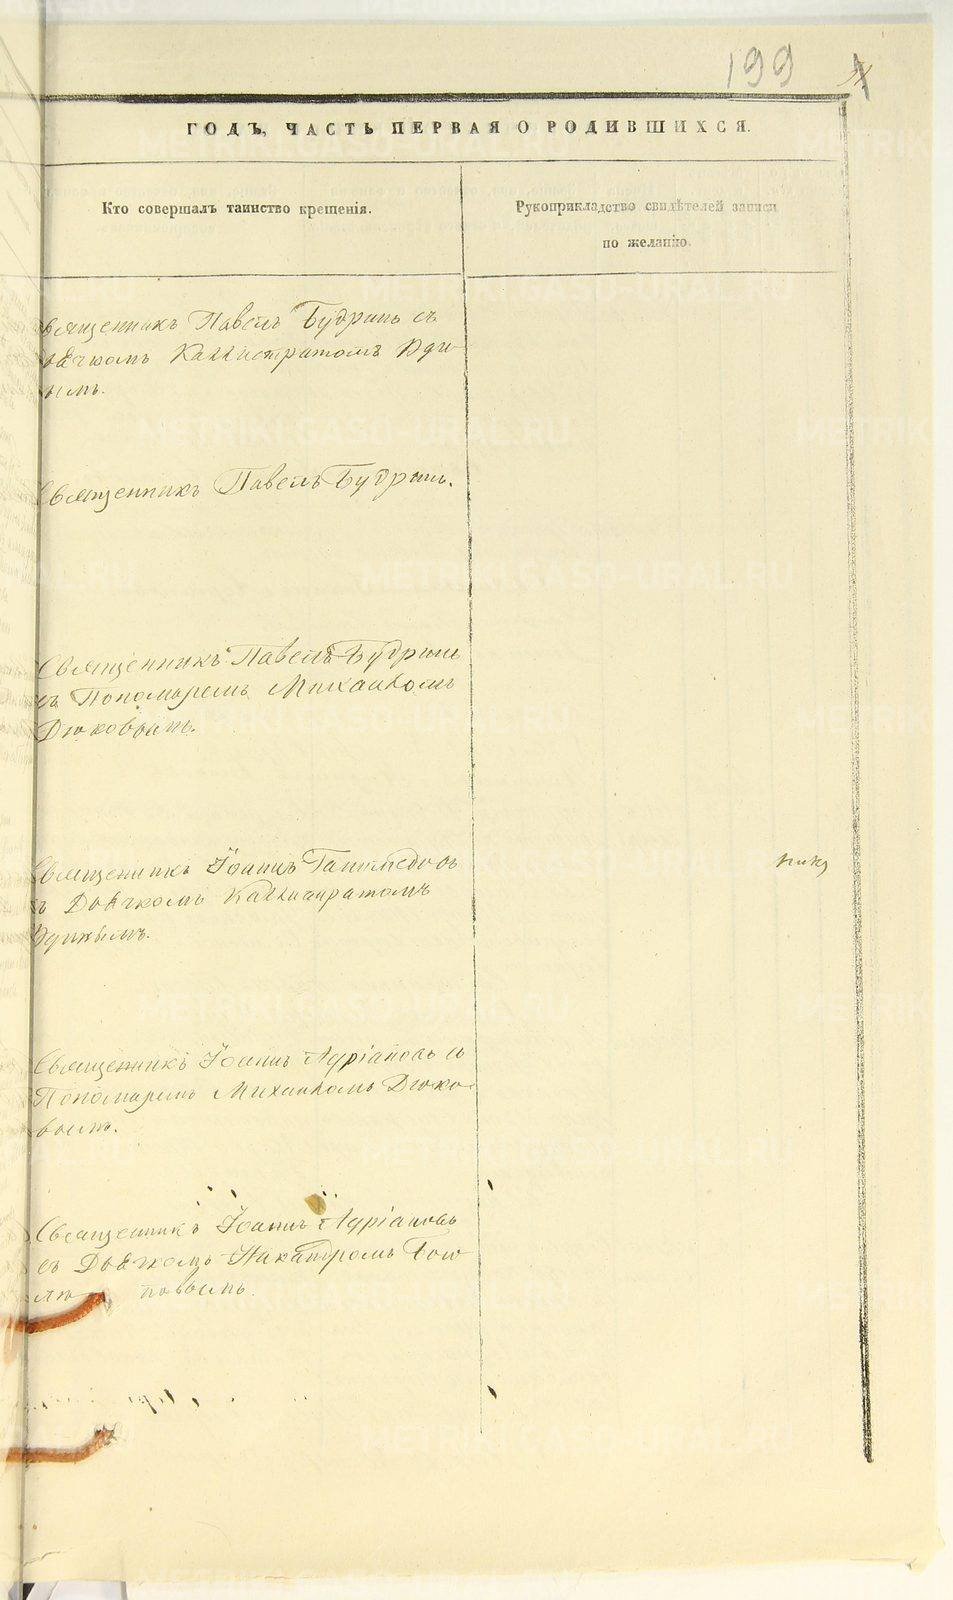 199
ГОДЪ, ЧАСТЬ ПЕРВАЯ О РОДИВШИХСЯ.
Кто совершалъ таинство крещенія.
Рукоприкладство свидѣтелей записи
по желанію.
Священникъ Павелъ Будринъ съ
Дьячкомъ Каллистратомъ Яди-
нымъ.
Священникъ Павелъ Будринъ.
Священникъ Павелъ Будринъ
съ Пономаремъ Михаиломъ
Дюковымъ.
Священникъ Іоаннъ Ганимедовъ
съ Дьячкомъ Каллистратомъ
Священникъ Іоаннъ Адріановъ съ
Пономаремъ Михаиломъ Дюко-
вымъ.
Священникъ Іоаннъ Адріановъ
съ Дьячкомъ
METRIKI.GASO-URAL.RU